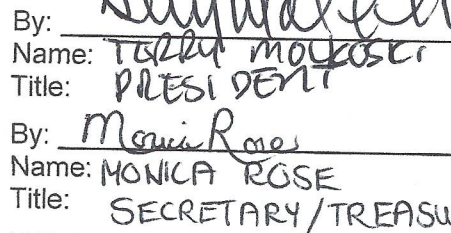 By:
Name: TERRY MOLKOSKI
Title: PRESIDENT
By: Monica Rose
Name: MONICA ROSE
Title: SECRETARY/TREASU